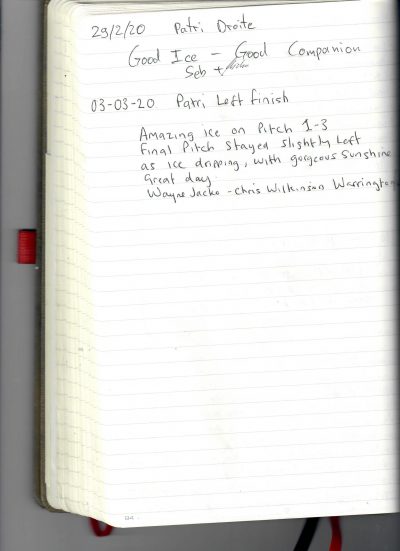 29/2/20 Patri Droite
Good Ice - Good Companion
Seb +
03-03-20 Patri Left finish
Amazing ice on Pitch 1-3
Final Pitch Stayed slightly left
as ice dripping, with gorgeous sunshine
Great day
Wayne Jacko - Chris Wilkinson Warrington